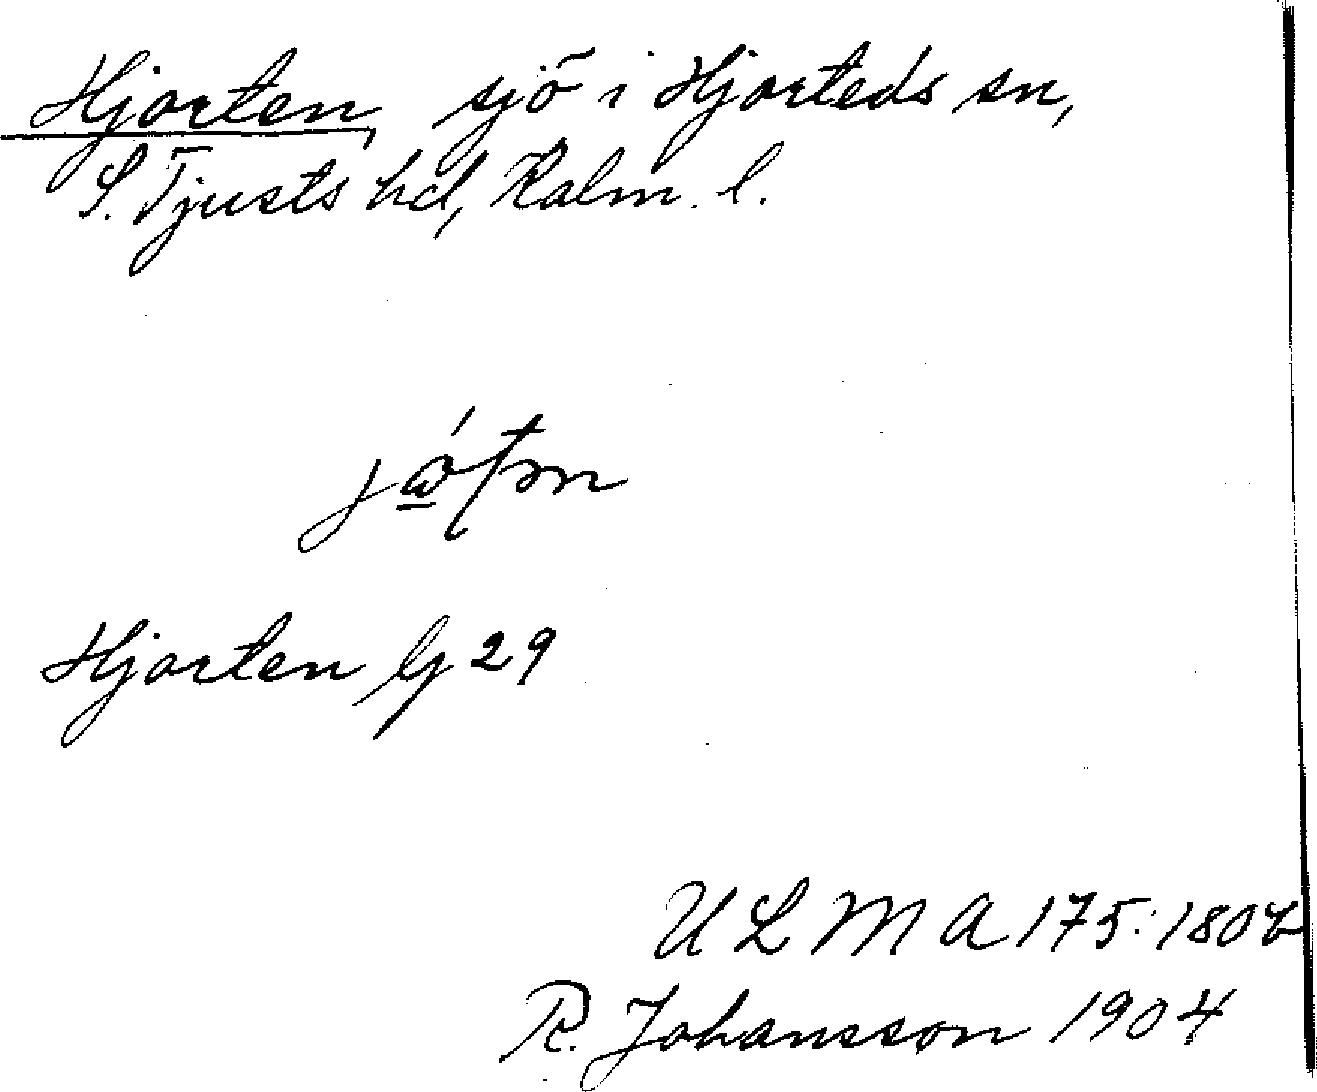 Hjorten, sjö i Hjorteds sn,
S. Tjusts hd, Kalm. l.
Hjorten Gj 29
ULMA 175:180b
R. Johansson 1904